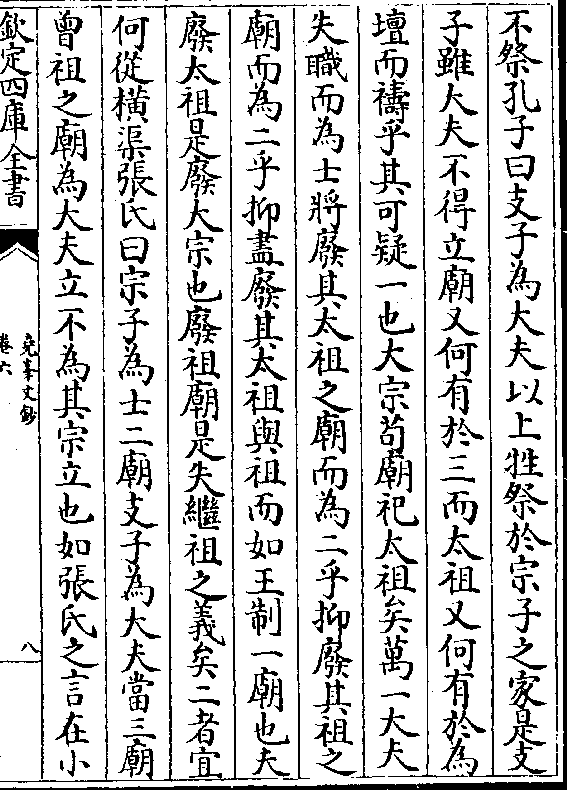 不祭孔子曰支子為大夫以上牲祭於宗子之家是支
子雖大夫不得立廟又何有於三而太祖又何有於為
壇而禱乎其可疑一也大宗苟廟祀太祖矣萬一大夫
失職而為士將廢其太祖之廟而為二乎抑廢其祖之
廟而為二乎抑盡廢其太祖與祖而如王制一廟也夫
廢太祖是廢大宗也廢祖廟是失繼祖之義矣二者宜
何從横渠張氏曰宗子為士二廟支子為大夫當三廟
曾祖之廟為大夫立不為其宗立也如張氏之言在小
欽定四庫全書
堯峯文鈔
卷六
八